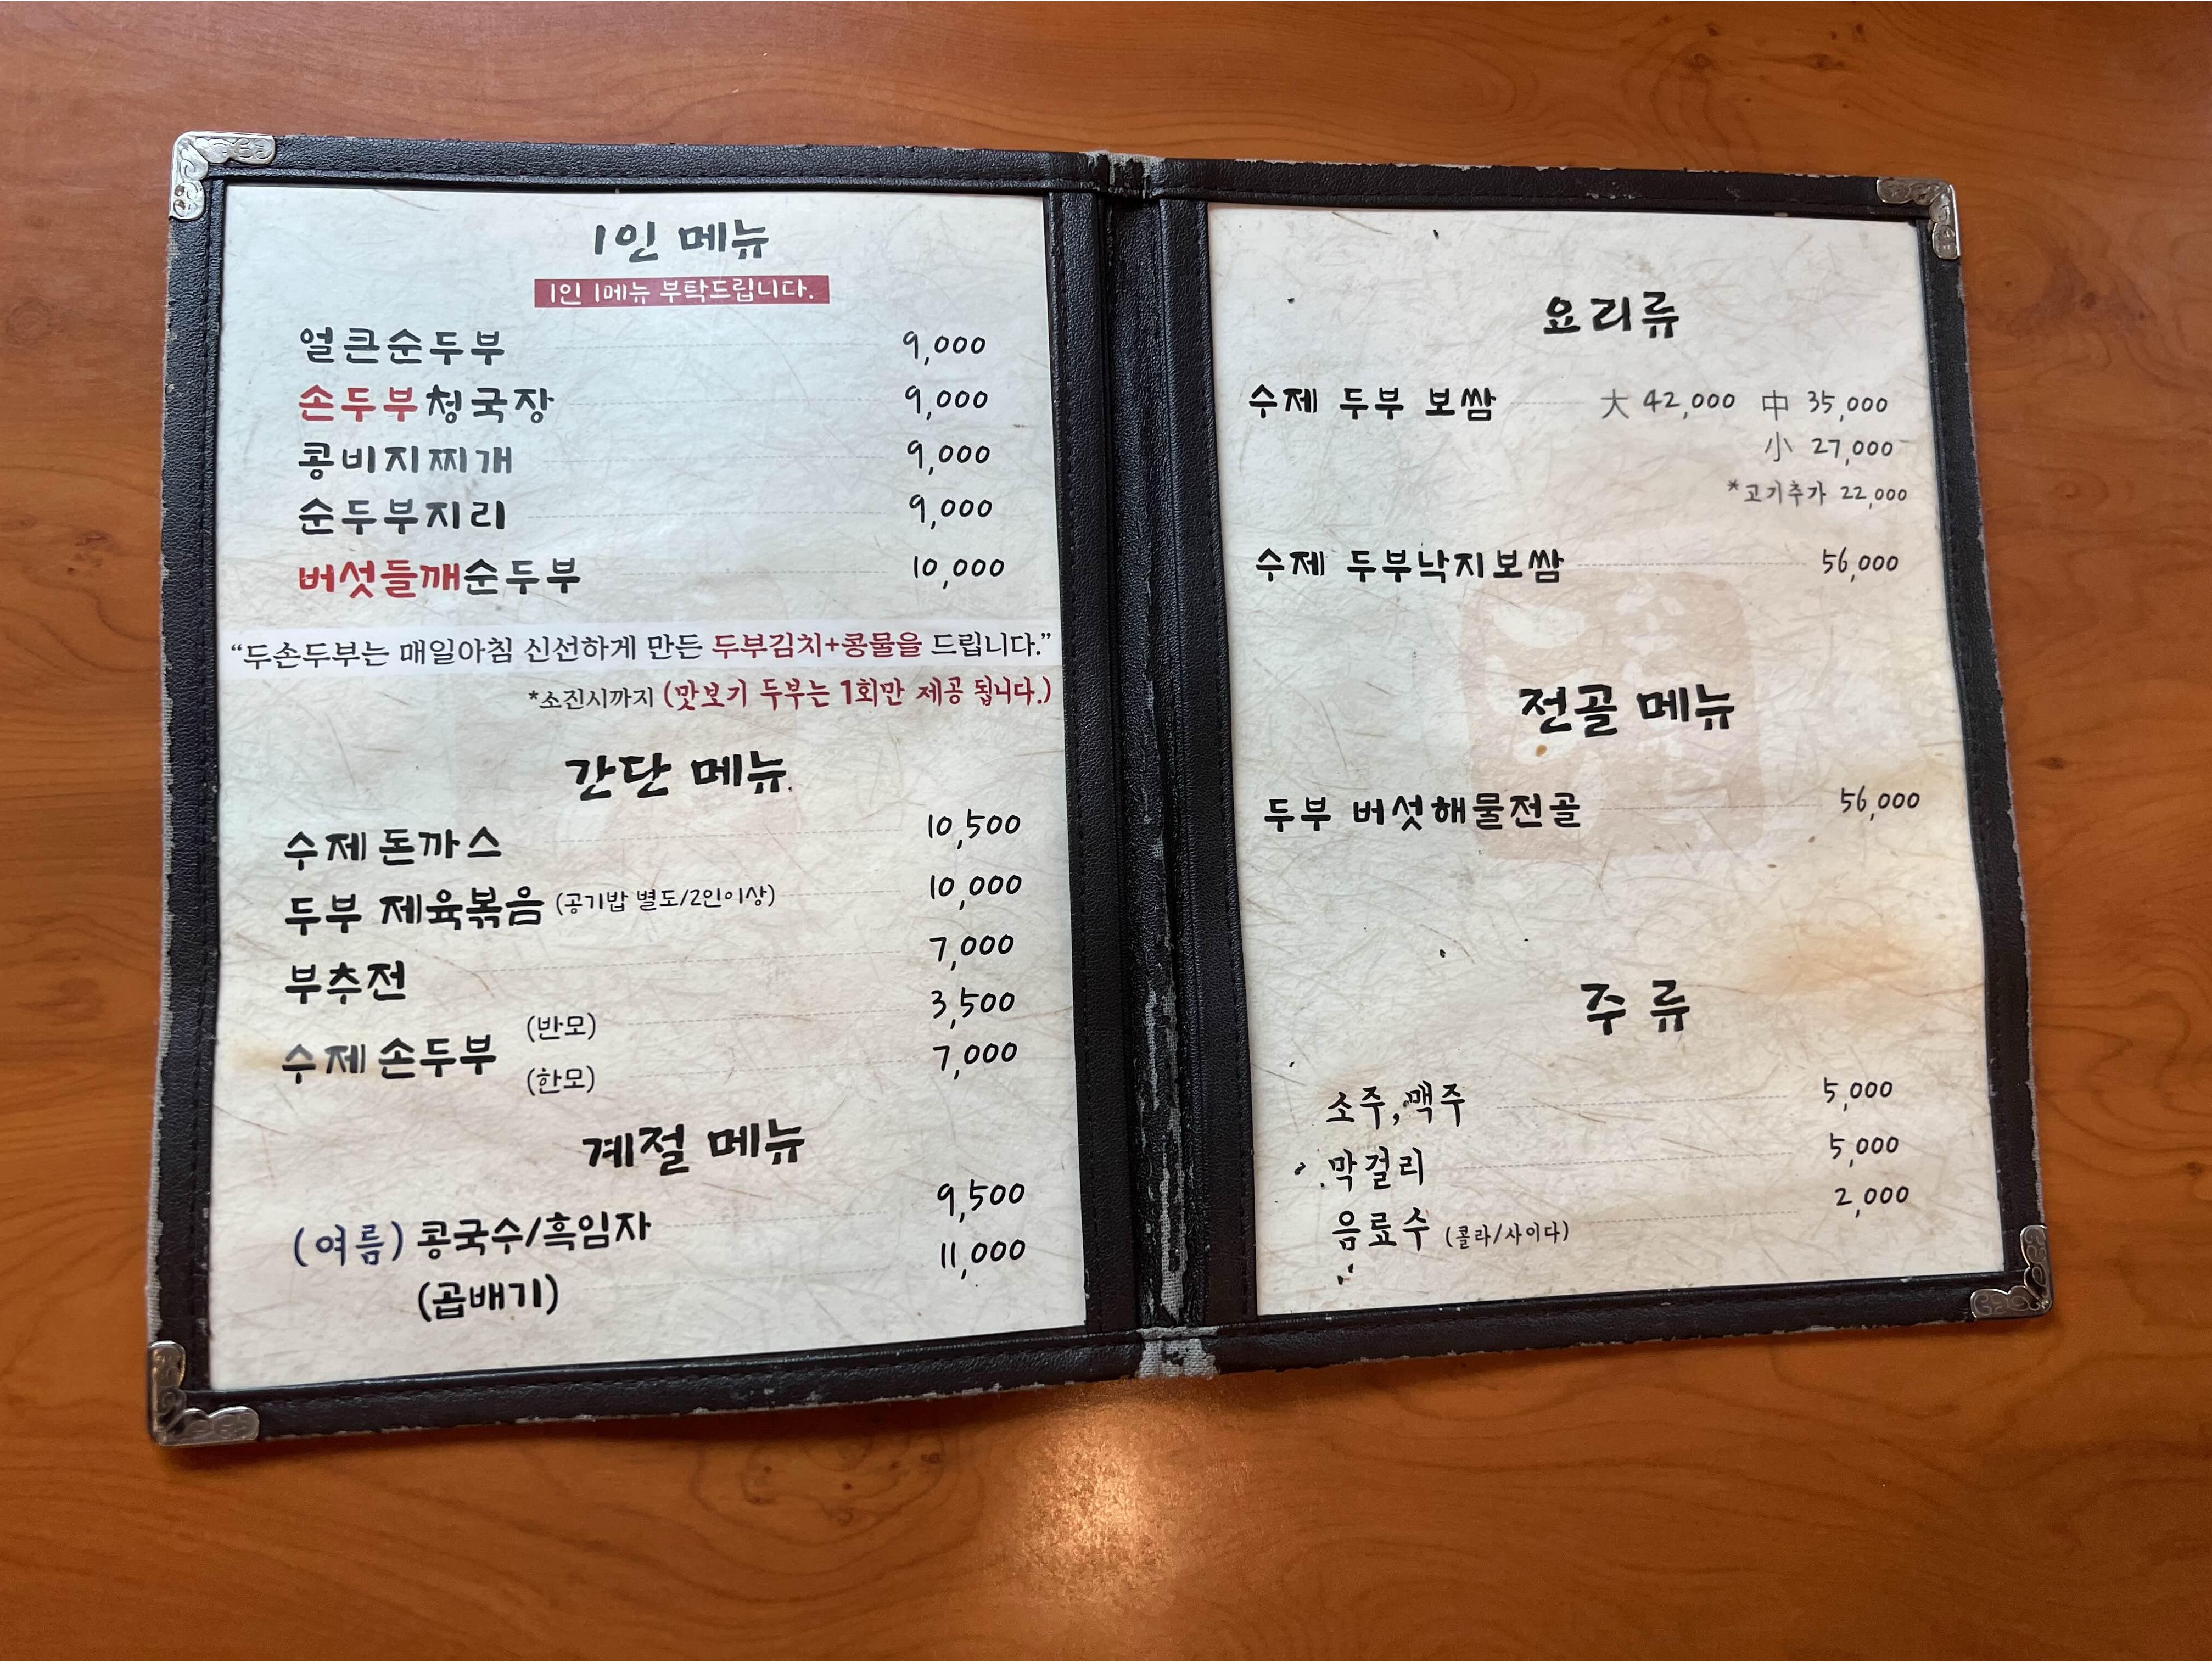 1인 메뉴
1인 1메뉴 부탁드립니다.
얼큰순두부 9,000
손두부청국장 9,000
콩비지찌개 9,000
순두부지리 9,000
버섯들깨순두부 10,000
“두손두부는 매일아침 신선하게 만든 두부김치+콩물을 드립니다.”
*소진시까지 (맛보기 두부는 1회만 제공 됩니다.)
간단 메뉴
수제 돈까스 10,500
두부 제육볶음 (공기밥 별도/2인이상) 10,000
부추전 7,000
수제 손두부 (반모) 3,500
(한모) 7,000
계절 메뉴
(여름) 콩국수/흑임자 9,500
(곱배기) 11,000
요리류
수제 두부 보쌈 大 42,000 中 35,000
小 27,000
*고기추가 22,000
수제 두부낙지보쌈 56,000
전골 메뉴
두부 버섯해물전골 56,000
주류
소주,맥주 5,000
막걸리 5,000
음료수 (콜라/사이다) 2,000